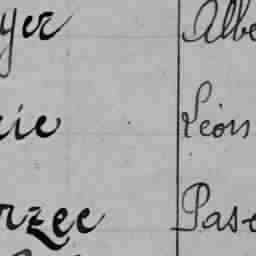 yer Albe
eie Léon
rzee Pas